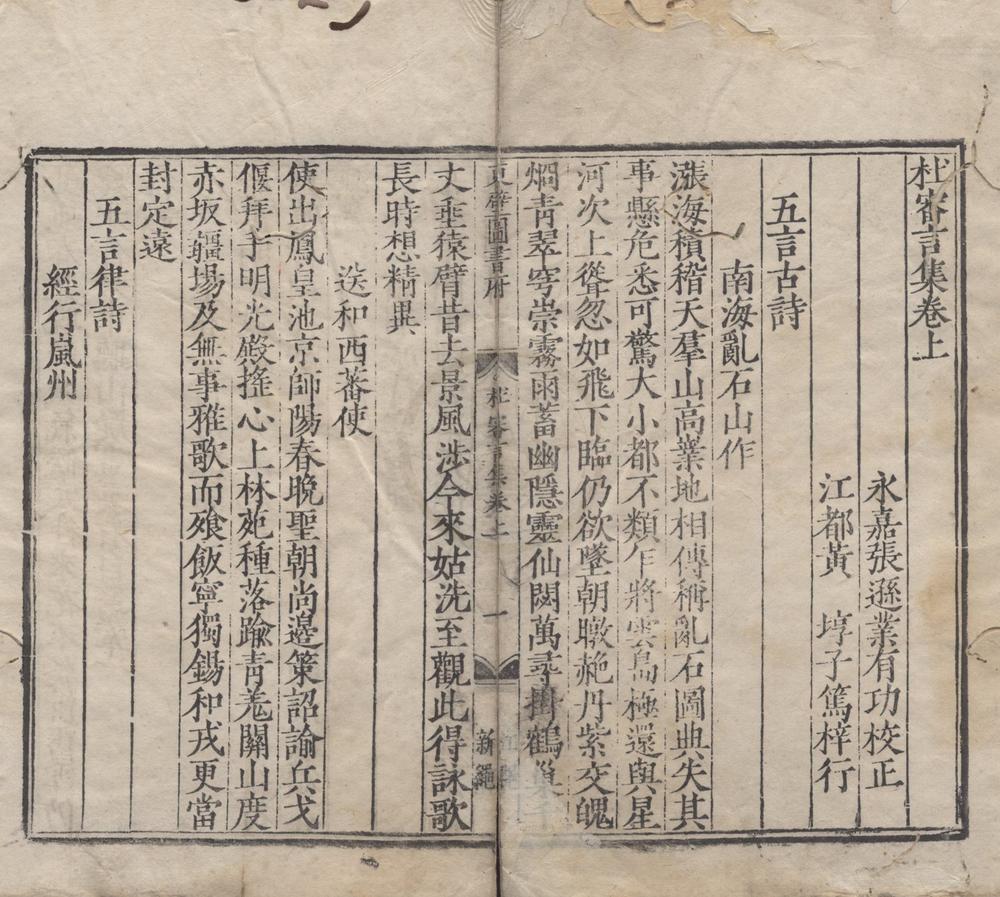 杜審言集卷上
永嘉張遜業有功校正
江都黃　埻子篤梓行
五言古詩
南海亂石山作
漲海積稽天羣山高嶪地相傳稱亂石圖典失其
事懸危悉可驚大小都不類乍將雲島極還與星
河次上聳忽如飛下臨仍欲墜朝暾赩丹紫夜魄
烱青翠穹崇霧雨蓄幽隱靈仙閟萬尋掛鶴巢千
東壁圖書府
杜審言集卷上
一
新繩
丈垂猿臂昔去景風涉今來姑洗至觀此得詠歌
長時想精異
送和西蕃使
使出鳳皇池京師陽春晚聖朝尚邊策詔諭兵戈
偃拜手明光殿搖心上林苑種落踰青羌關山度
赤坂疆場及無事雅歌而飧飯寧獨錫和戎更當
封定遠
五言律詩
經行嵐州